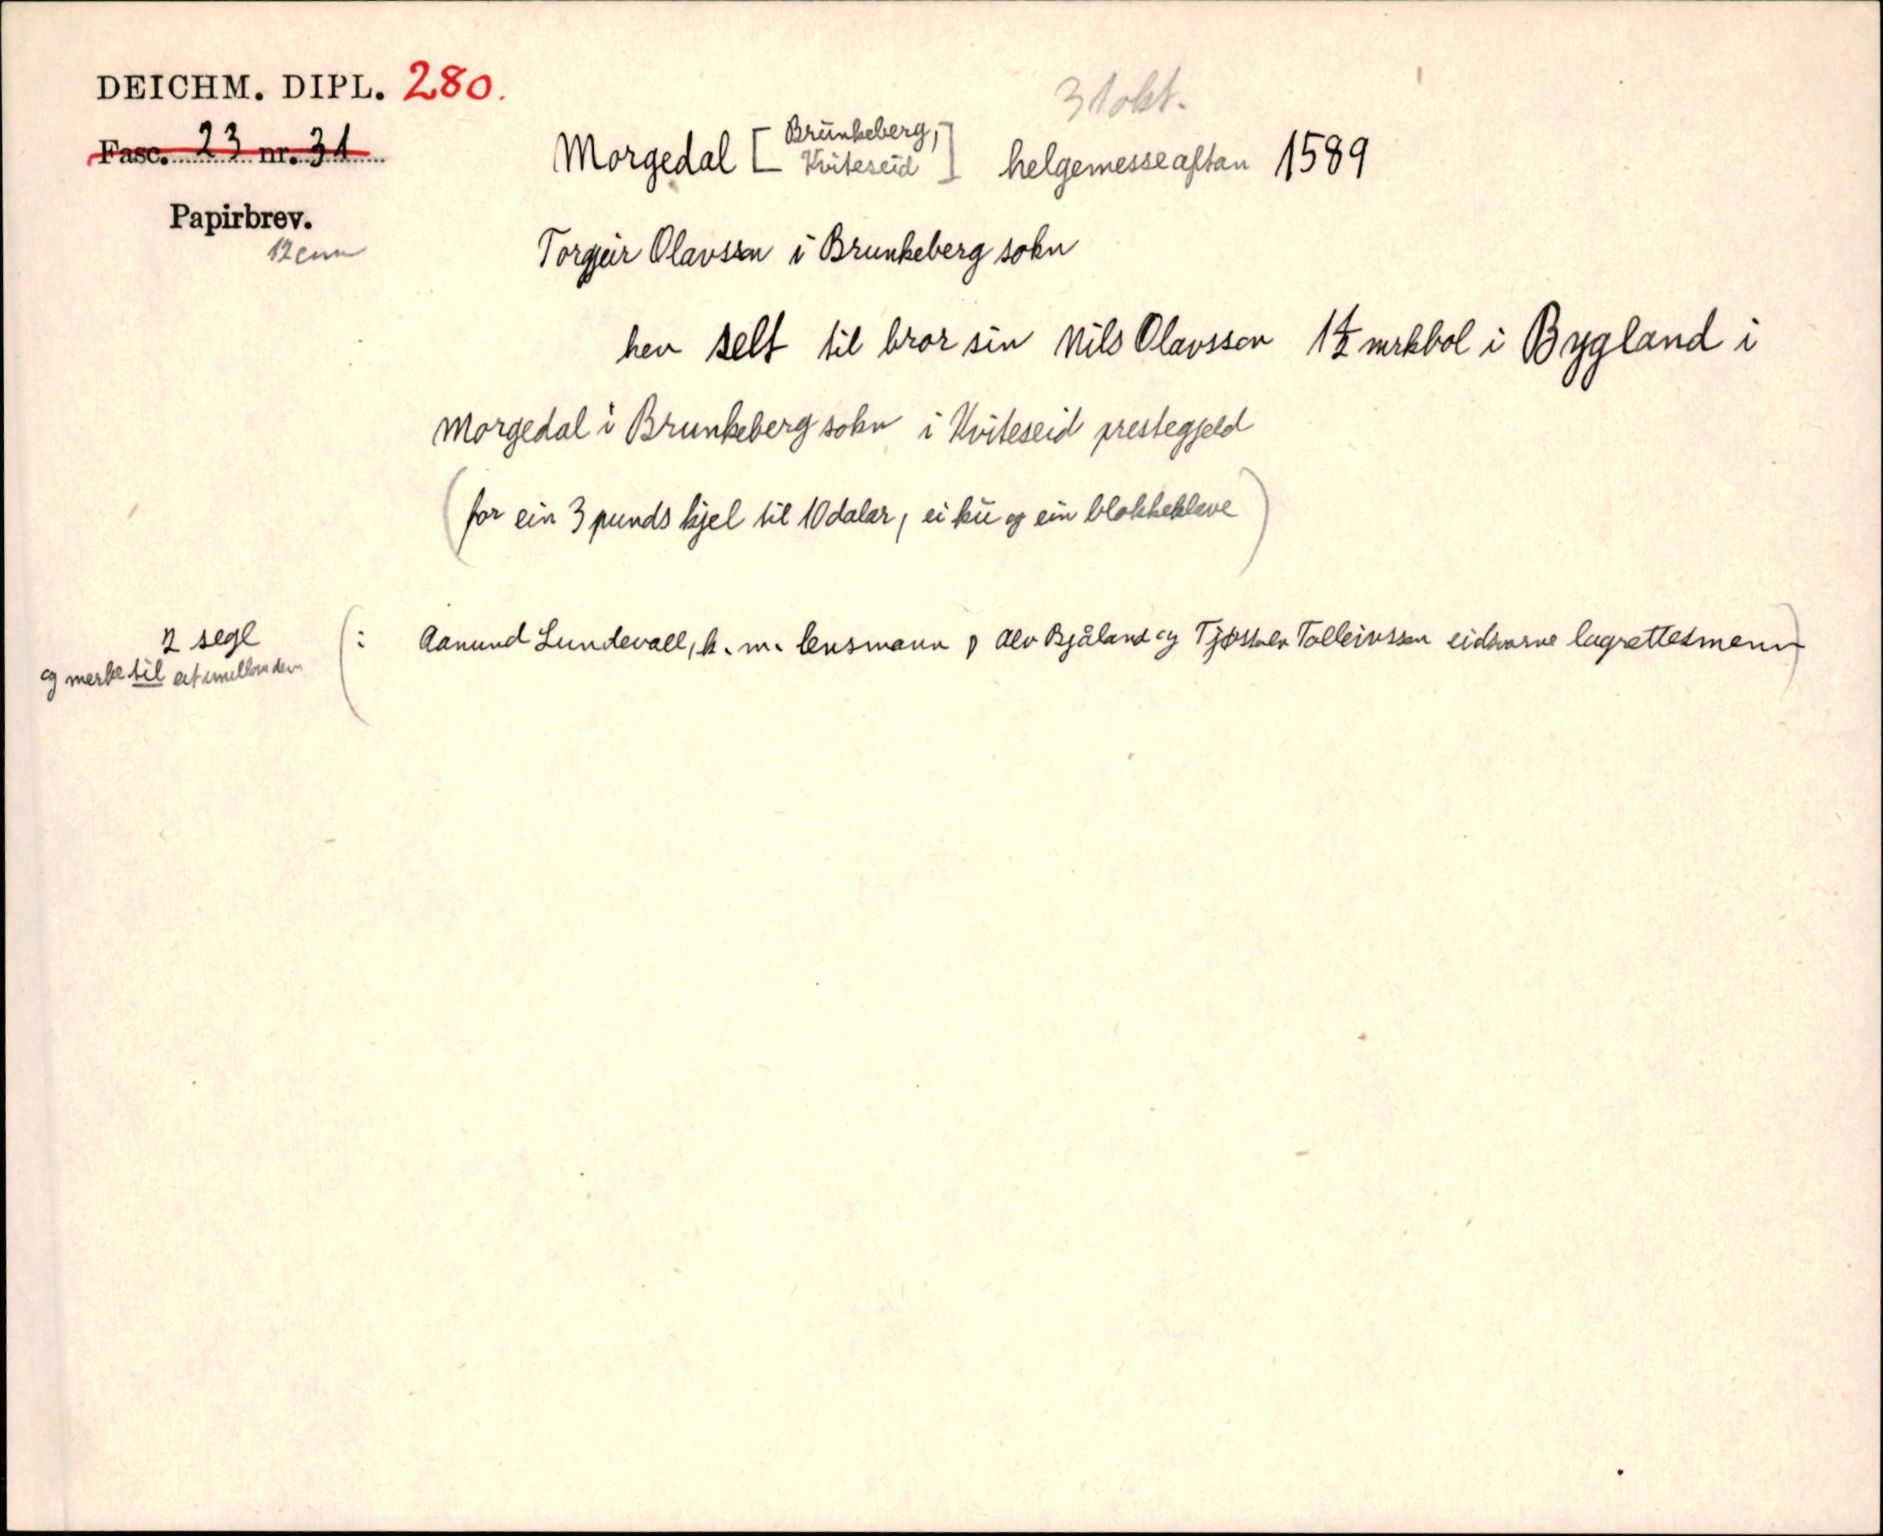 DEICHM. DIPL. 280.
31 okt.
Fasc. 23 nr. 31
Morgedal [Brunkeberg, Kviteseid] helgemesseaftan 1589
Papirbrev.
12 cm
Torgjeir Olavsson i Brunkeberg sokn
hev selt til bror sin Nils Olavsson 1 1/2 mrkbol i Bygland i
Morgedal i Brunkeberg sokn i Kviteseid prestegjeld
(for ein 3 punds kjel til 10 dalar, ei ku og ein blokkeklave)
2 segl
og merke til eit imillom dem
(: Aanund Lundevall, k. m. lensmann, Alv Bjåland og Tjøstolv Tolleivsson eidsvorne lagrettesmenn)